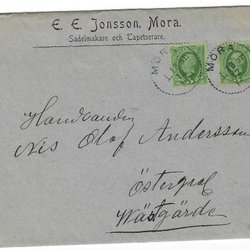 E. E. Jonsson, Mora.
Sadelmakare och Tapetserare.
MORA
MORA
Handlanden
Nis Olof Andersson
Östergraf
Wästgärde